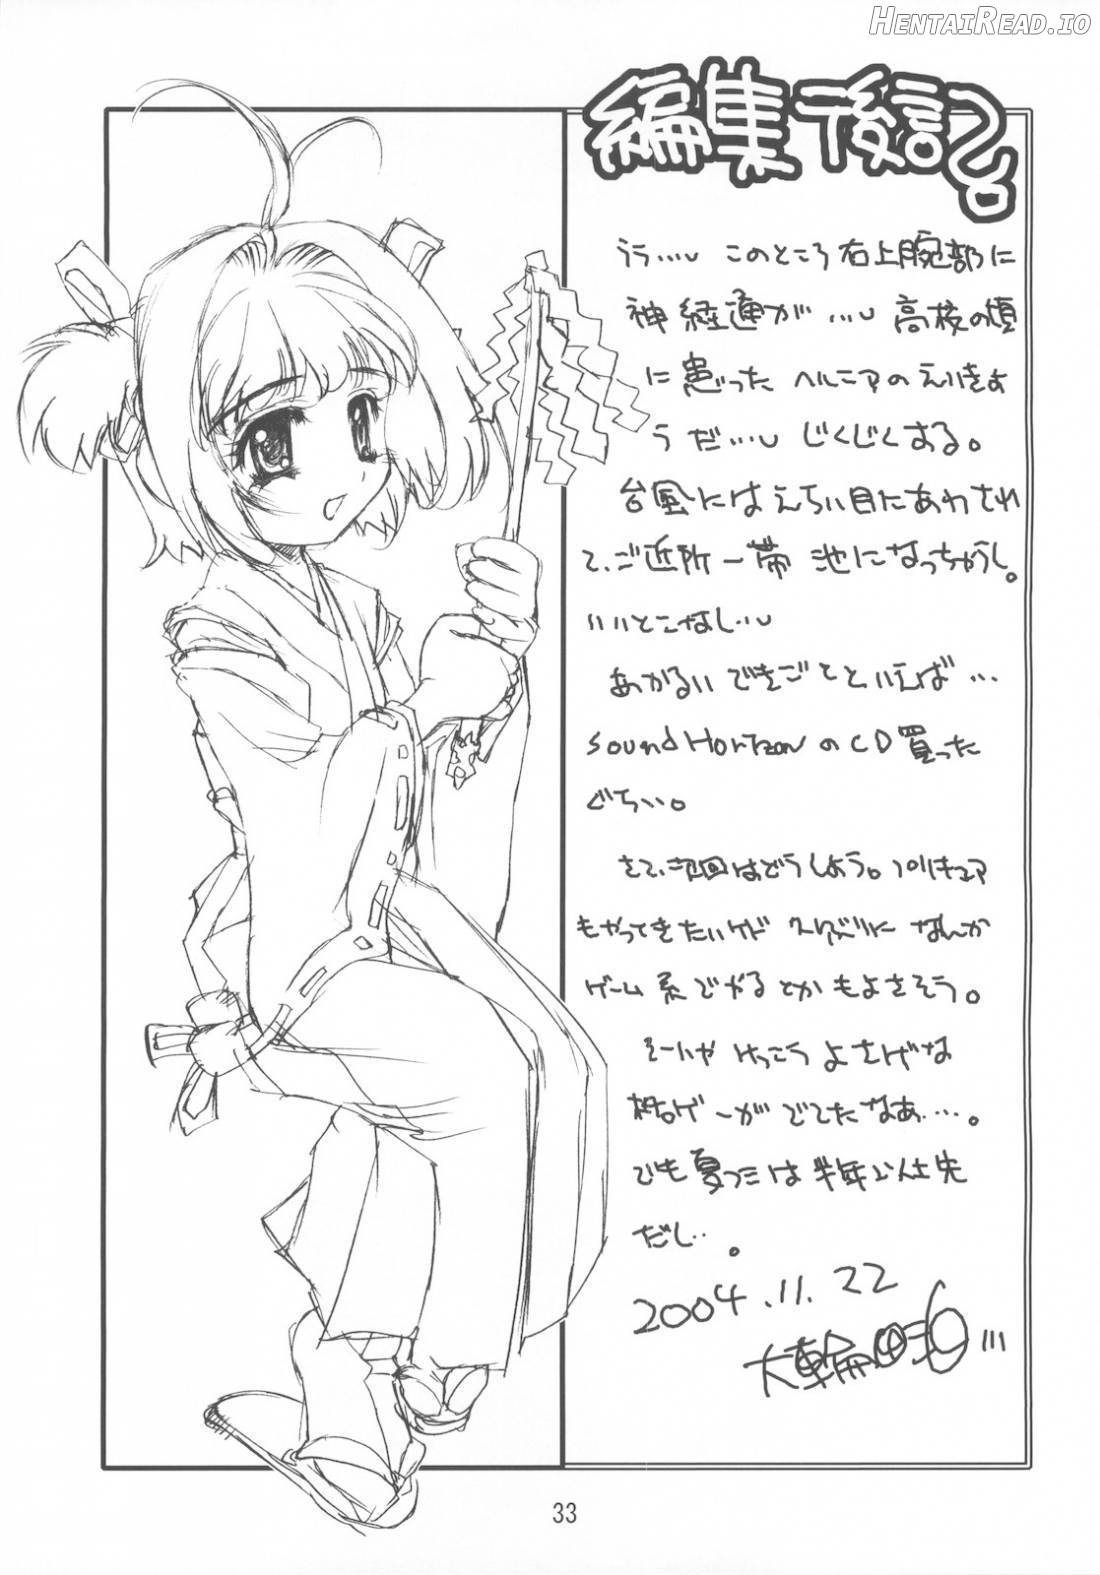 HENTAIREAD.IO
編集後記
うう…、このところ右上腕部に
神経通が…、高校の頃
に患ったヘルニアのえいきょ
うだ…、じくじくする。
台風にはえらい目にあわされ
て、ご近所一帯 池になっちゃうし。
いいとこなし…、
あかるいできごとといえば…
Sound HorizonのCD買った
ぐらい。
さて、次回はどうしよう。プリキュア
もやってきたいケド なんか
ゲーム系でやるとかもよさそう。
そーいや けっこうよさげな
格ゲーがでてたなあ…。
でも夏コミは半年以上先
だし…。
2004.11.22
33